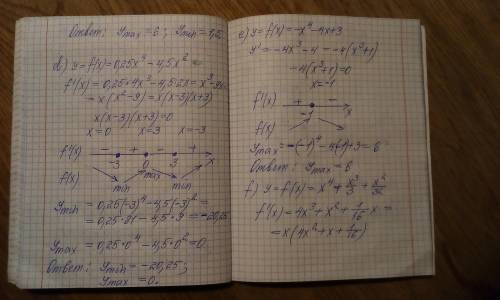 Ответ: Ymax = 6; Ymin = 5,25
d) y = f(x) = 0,25x⁴ - 4,5x² =
f'(x) = 0,25·4x³ - 4,5·2x = x³ - 9x =
= x(x² - 9) = x(x-3)(x+3)
x(x-3)(x+3) = 0
x = 0 x = 3 x = -3
f'(x) - + - + x
-3 0 3
f(x) min max min
Ymin = 0,25(-3)⁴ - 4,5(-3)² =
= 0,25·81 - 4,5·9 = -20,25
Ymax = 0,25·0⁴ - 4,5·0² = 0.
Ответ: Ymin = -20,25;
Ymax = 0.
e) y = f(x) = -x⁴ - 4x + 3
y' = -4x³ - 4 = -4(x³+1)
-4(x³+1) = 0
x = -1
f'(x) + - x
-1
f(x)
Ymax = -(-1)⁴ - 4(-1) + 3 = 6
Ответ: Ymax = 6
f) y = f(x) = x⁴ + x³/3 + x²/32
f'(x) = 4x³ + x² + 1/16 x =
= x(4x² + x + 1/16)